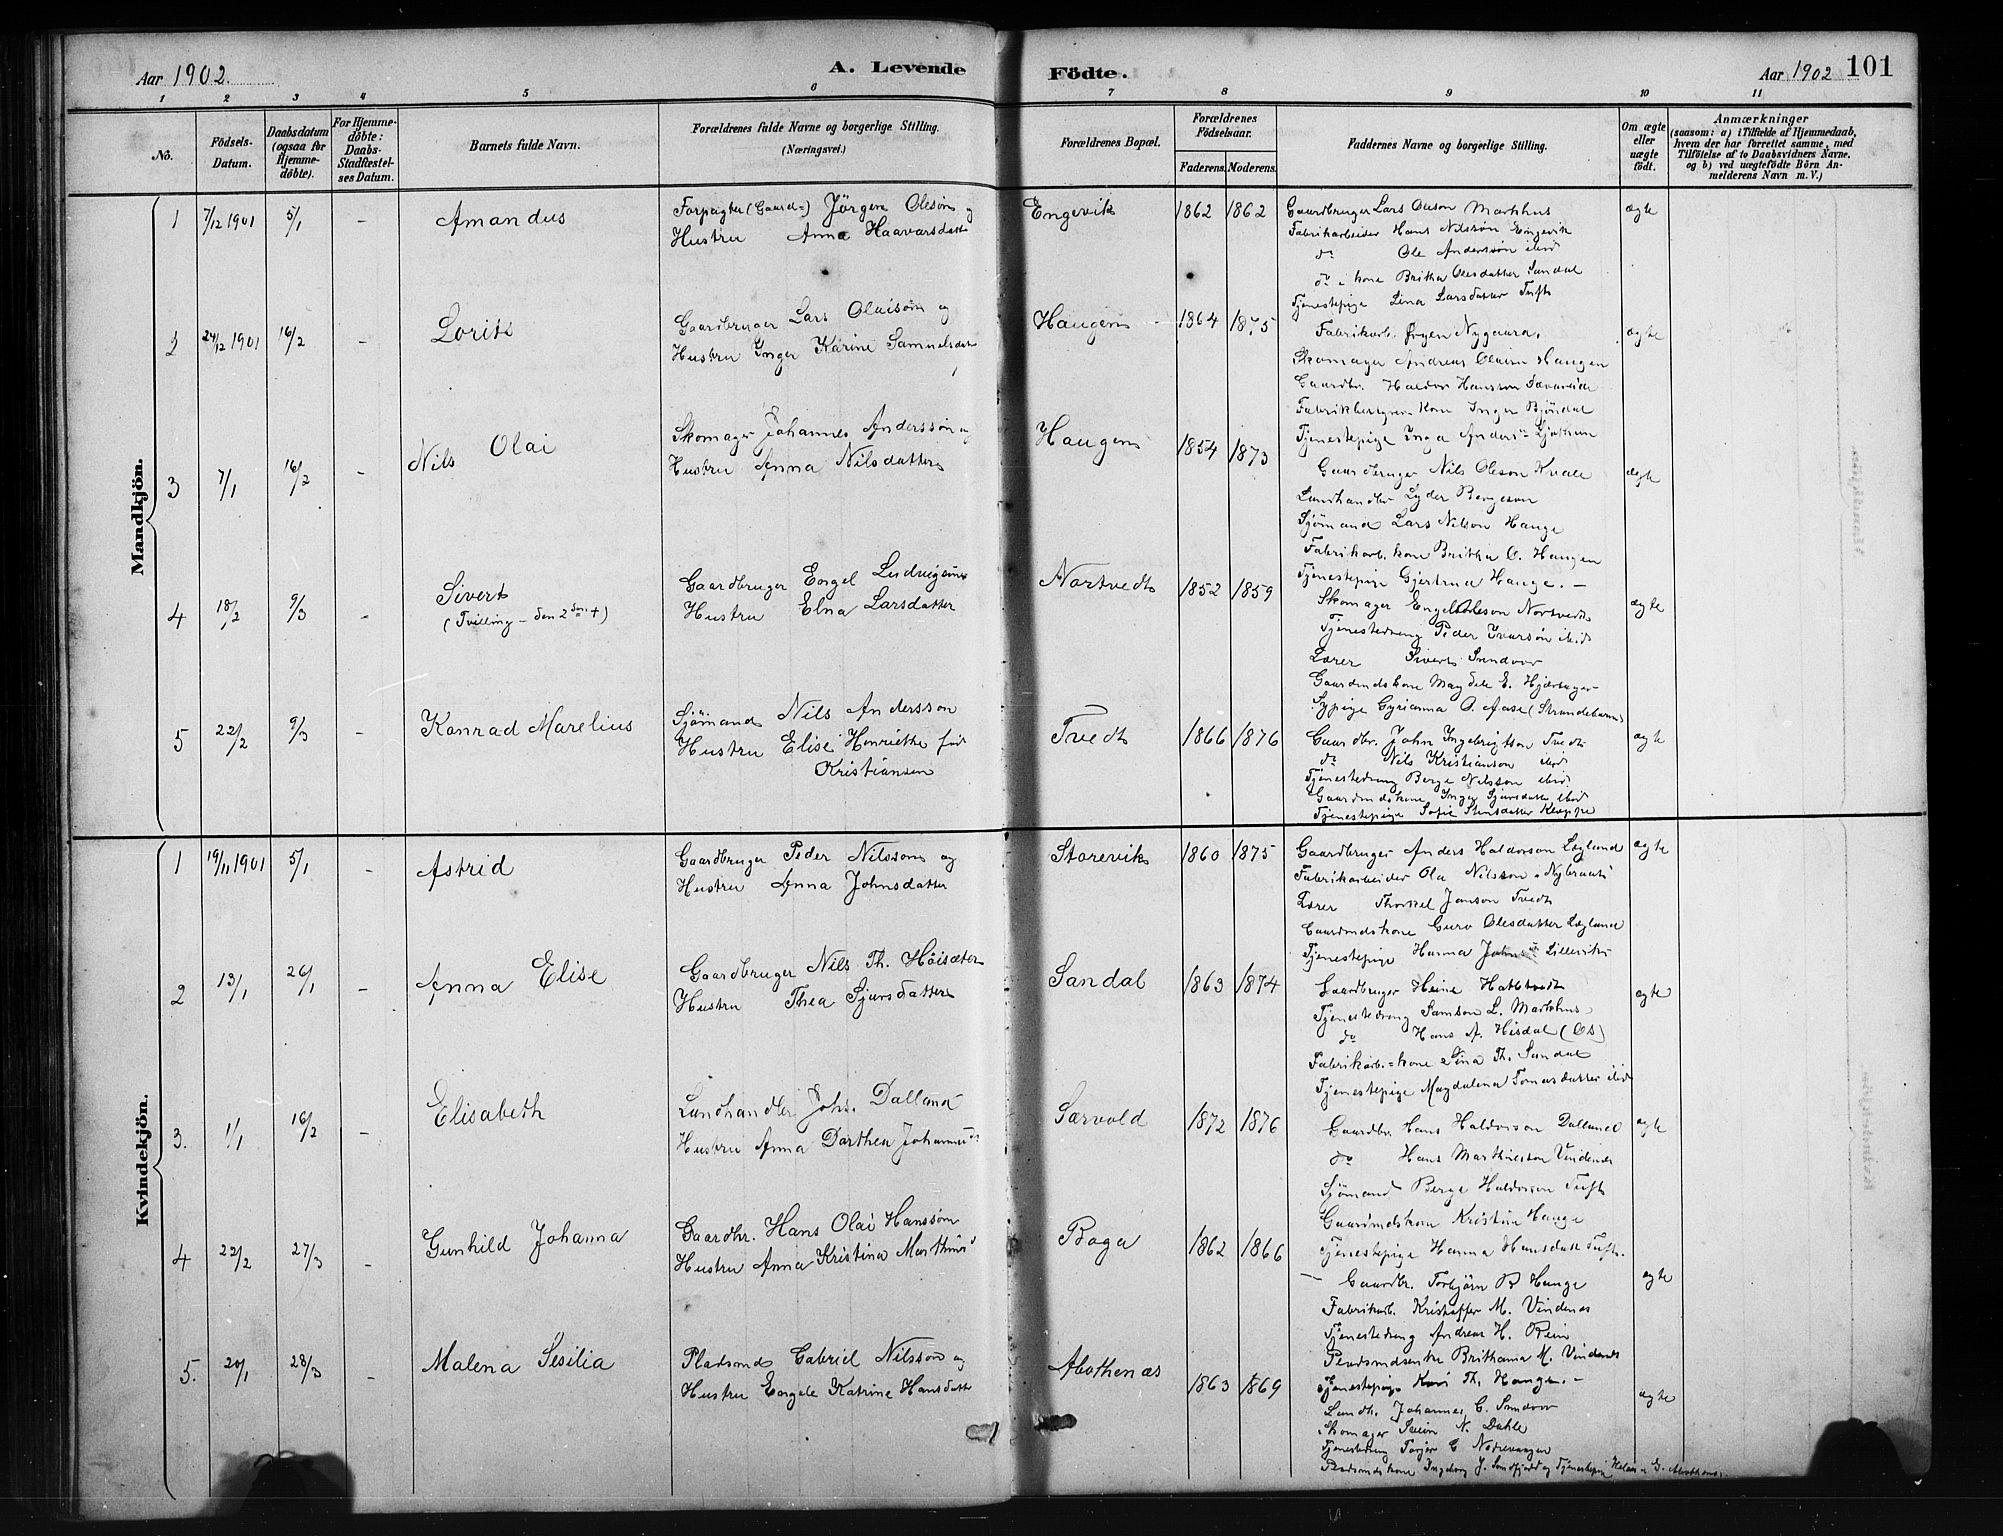 Aar 1902. A. Levende Födte. Aar 1902 101
1 2 3 4 5 6 7 8 9 10 11
No.
Födsels-Datum.
Daabsdatum (ogsaa for Hjemme-döbte).
For Hjemme-döbte: Daabs-Stadfæstel-ses Datum.
Barnets fulde Navn.
Forældrenes fulde Navne og borgerlige Stilling.
(Næringsvei.)
Forældrenes Bopæl.
Forældrenes Födselsaar.
Faderens. Moderens.
Faddernes Navne og borgerlige Stilling.
Om ægte eller uægte födt.
Anmærkninger
(saasom: a) i Tilfælde af Hjemmedaab,
hvem der har forrettet samme, med
Tilföielse af to Daabsvidners Navne,
og b) ved uegtefödte Börn An-
melderens Navn m. V.)
Mandkjön.
1 7/12 1901 5/1 - Amandus
Forpagter (Gaard=) Jörgen Olesön og
Hustru Anna Haavarsdatter
Engevik 1862 1862
Gaardbruger Lars Oleson Markhus
Fabrikarbeider Hans Nilssön Engevik
do Ole Anderssön ibid
do = kone Britha Olesdatter Sandal
Tjenestepige Lina Larsdatter Tuft
ægte
2 24/12 1901 16/2 - Lorits
Gaardbruger Lars Olaisön og
Hustru Inger Karine Samuelsdatter
Haugen 1864 1875
Fabrikarb. Ørgen Nygaard.
Skomager Andreas Olaisen Haugen
Gaardbr. Haldor Hansson Sævareide
Kone Inger Bjöndal
Tjenestepige Inga Anders
ægte
3 7/1 16/2 - Nils Olai
Skomager Johannes Anderssön og
Hustru Anna Nilsdatter
Haugen 1854 1873
Gaardbruger Nils Oleson Kvale
Landhandler Lyder Bergeson
Sjömand Lars Nilson Hauge
Fabrikarb. kone Britha O. Haugen
Tjenestepige Gjertrud Hauge. -
ægte
4 18/2 9/3 - Sivert
(Tvilling - den 2den +)
Gaardbruger Engel Ludvigsen
Hustru Elna Larsdatter
Nortvedt 1852 1859
Skomager Engel Oleson Nortvedt
Tjenestedreng Peder Ivarsön ibid
Lærer Sivert Sundvor
Gaardmdskone Magdele E. Hjærtager
Sypige Gyrianna O. Aase (Strandebarm)
ægte
5 22/2 9/3 - Konrad Marelius
Sjömand Nils Andersson
Hustru Elise Henriette föd
Kristiansen
Tvedt 1866 1876
Gaardbr. John Ingebrigtson Tvedt
do Nils Kristianson ibid
Tjenestedreng Berge Nilsson ibid
Gaardmdskone Inger Sjursdatter ibid
Tjenestepige Sofie
ægte
Kvindekjön.
1 19/11 1901 5/1 - Astrid
Gaardbruger Peder Nilsson og
Hustru Anna Johnsdatter
Storevik 1860 1875
Gaardbruger Anders Haldorson Lægland
Fabrikarbeider Ola Nilsson
Lærer Thorkel Janson Tvedt
Gaardmdskone Guro Olesdatter Lægland
Tjenestepige Hanna Lillevik
ægte
2 13/1 26/1 - Anna Elise
Gaardbruger Nils Th. Höisæter
Hustru Thea Sjursdatter
Sandal 1863 1874
Gaardbruger Heine Hattvedt
Tjenestedreng Samson L. Markhus
do Hans A. Hisdal (Os)
Fabrikarb.=kone Sina Th. Sandal
Tjenestepige Magdalena Tomasdatter ibid
ægte
3. 1/1 16/2 - Elisabeth
Landhandler Johs. Dalland
Hustru Anna Dorthea Johannesd.
Særvold 1872 1876
Gaardbr. Hans Haldorson Dalland
do Hans Mathiesson Vindenes
Sjömand Berge Haldorson Tuft
Gaardmdskone Kristina Hauge
Tjenestepige Hanna Hansdatt Tuft.
ægte
4 22/2 27/3 - Gunhild Johanna
Gaardbr. Hans Olai Hanssön
Hustru Anna Kristina
Boga 1862 1866
Gaardbr. Torbjörn B Hauge
Fabrikarb. Kristoffer M. Vindenas
Tjenestedreng Andreas H. Reim
Britthana M. Vindenes
Tjenestepige Kari Th. Hauge. -
ægte
5. 20/1 28/3 - Malena Sesilia
Pladsmd Gabriel Nilssön og
Hustru Engele Katrine Hansdatter
Alvthenæs 1863 1869
Landh. Johannes C. Sundvor
Skomager N. Dahle
Tjenestedreng Torger G.
Pladsmdskone Ingeborg J. og Tjenestepige
ægte